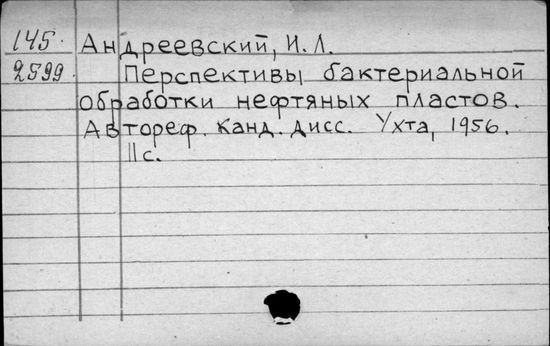 145. Андреевский, И.Л.
2599. Перспективы бактериальной
обработки нефтяных пластов.
Автореф. канд. дисс. Ухта, 1956.
11с.